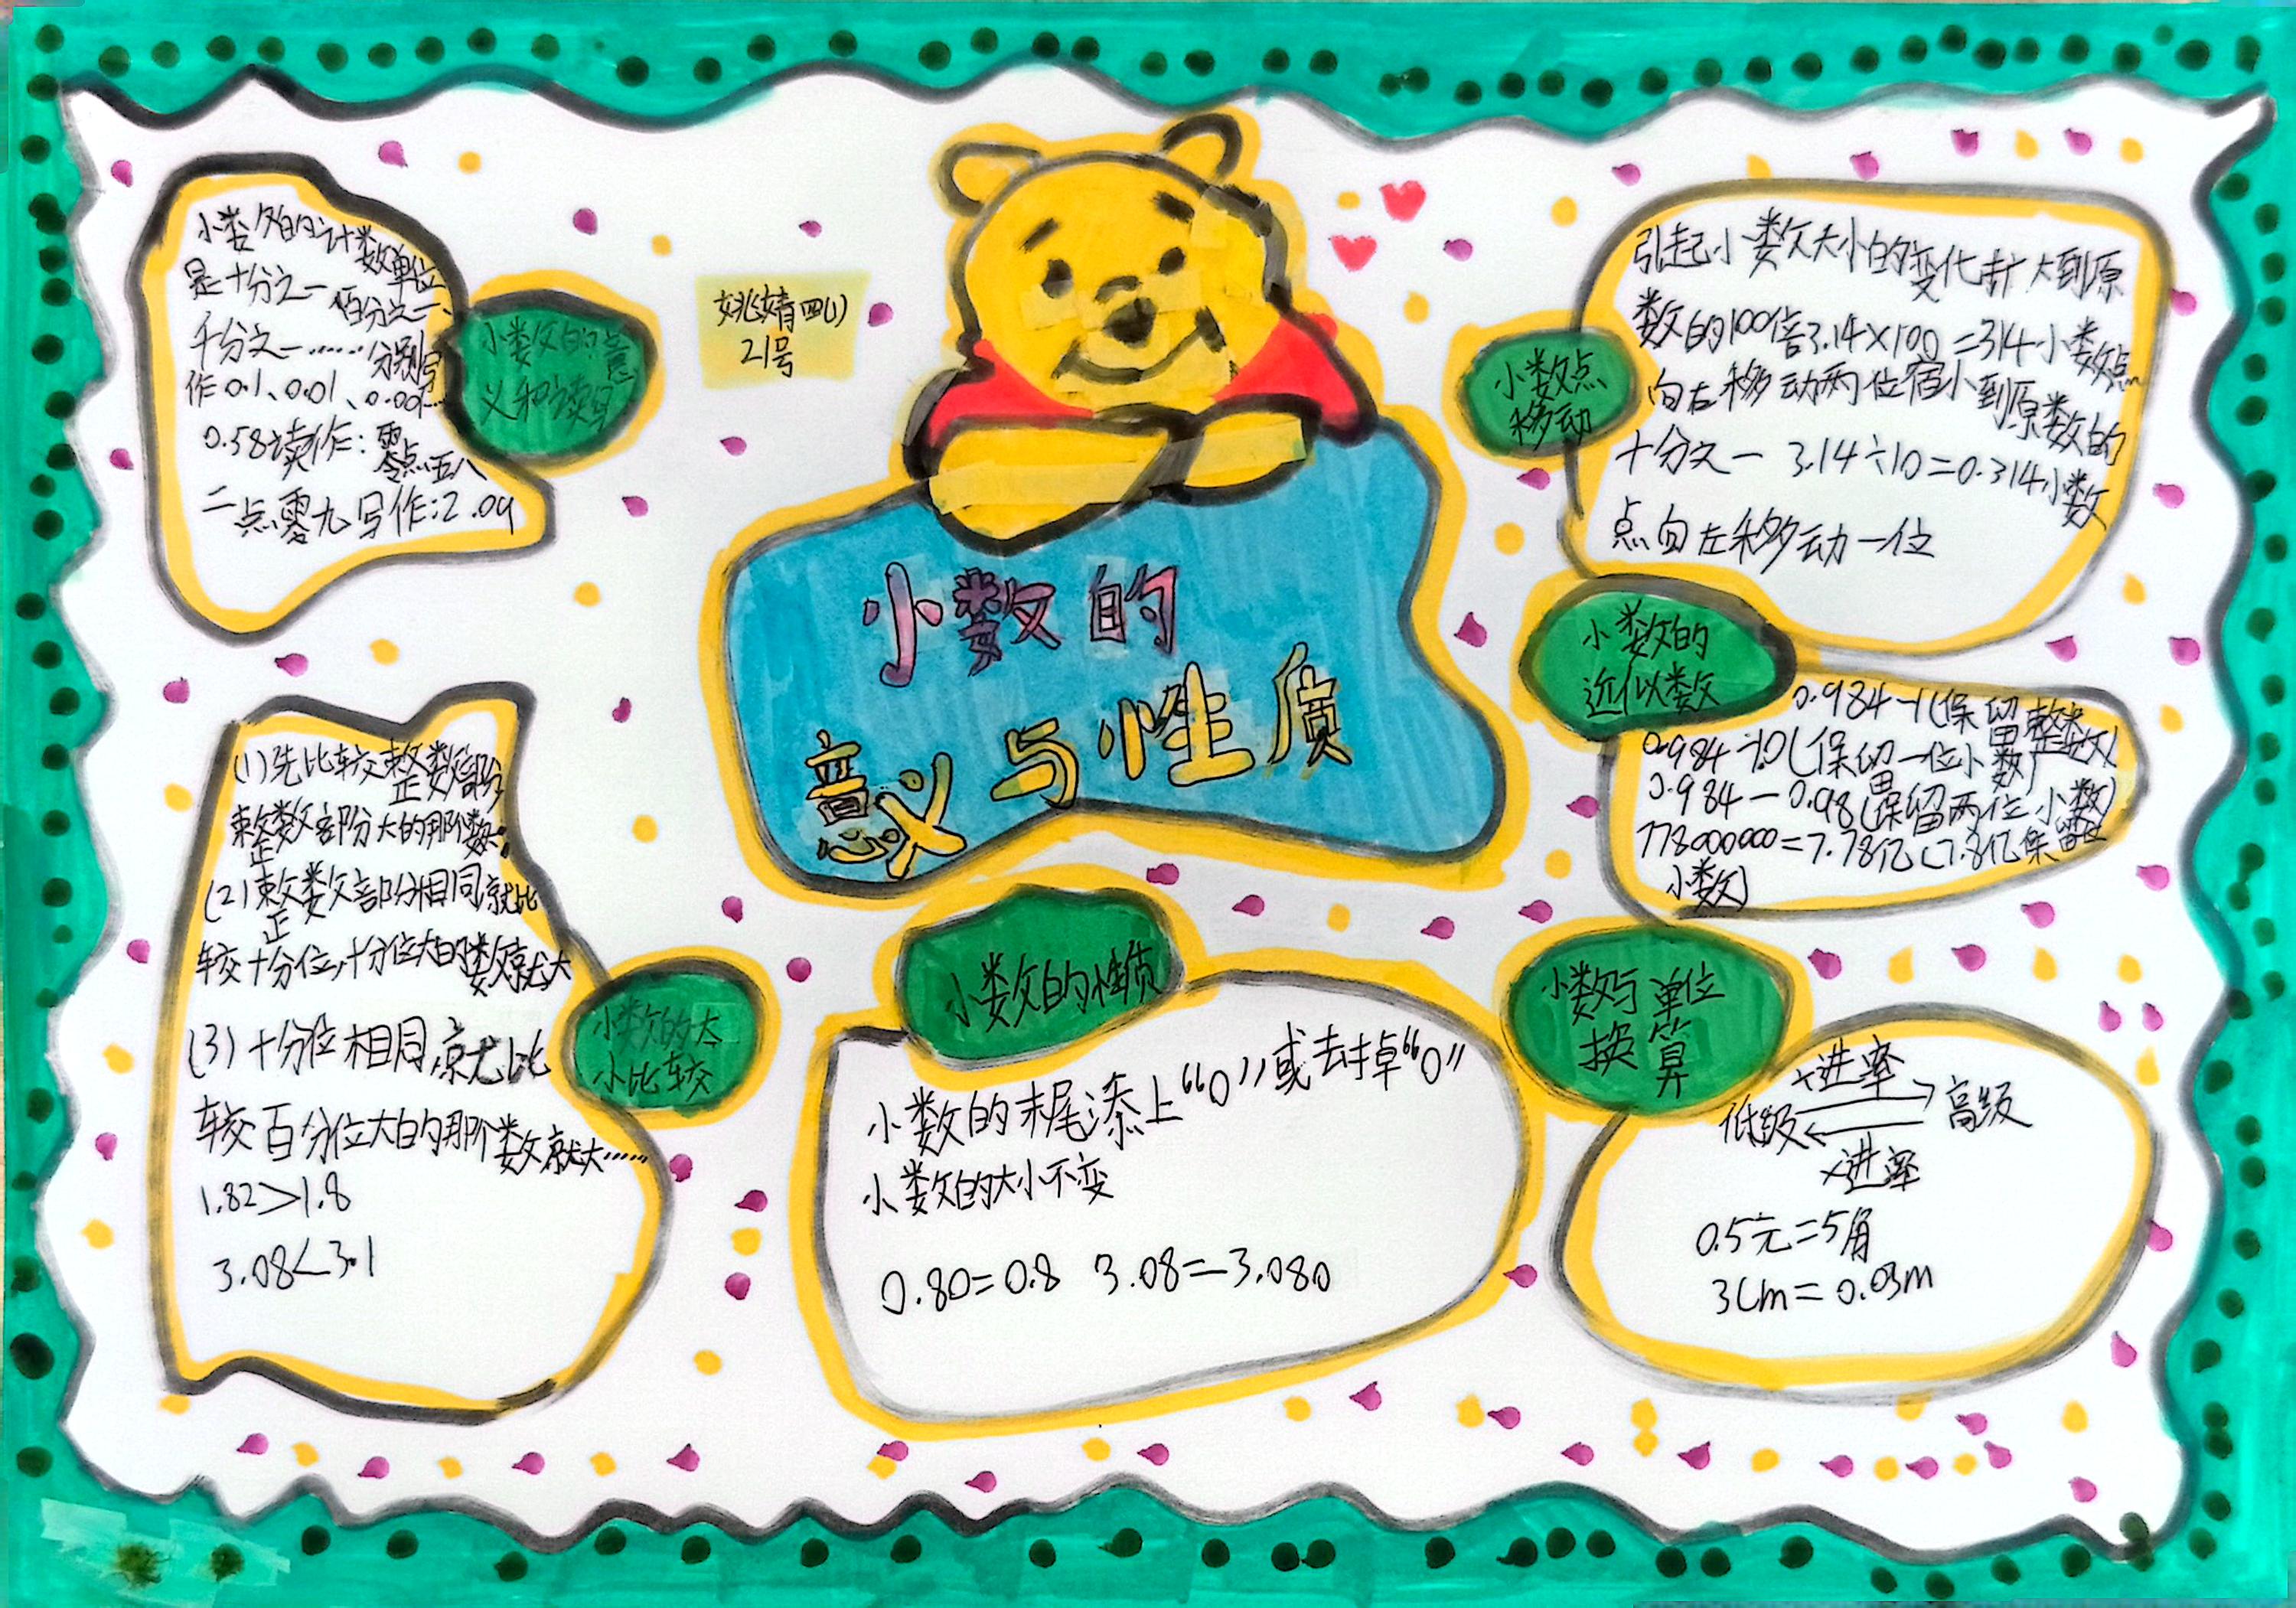 小数的
意义与性质
姚婧四(1)
21号
小数的意
义和读写
小数的计数单位
是十分之一、百分之一、
千分之一……分别写
作0.1、0.01、0.001…
0.58读作：零
点五八
二点零九写作：2.09
小数的大
小比较
(1)先比较整数部分
整数部分大的那个数
(2)整数部分相同就比
较十分位,十分位大的数就大
(3)十分位相同,就比
较百分位大的那个数就大……
1.82>1.8
3.08<3.1
小数的性质
小数的末尾添上“0”或去掉“0”
小数的大小不变
0.80=0.8 3.08=3.080
小数点
移动
引起小数大小的变化扩大到原
数的100倍3.14×100=314小数点
向右移动两位缩小到原数的
十分之一 3.14÷10=0.314小数
点向左移动一位
小数的
近似数
0.984-1(保留整数)
0.984 1.0(保留一位小数)
0.984-0.98(保留两位小数)
778000000=7.78亿(7.8亿保留
小数)
小数与单位
换算
进率
低级 高级
×进率
0.5元=5角
3cm=0.03m